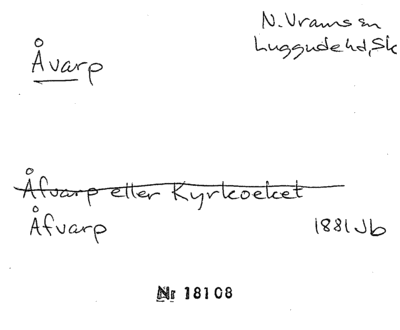 Åvarp
N. Vrams sn
Luggude hd, Sk
Åfvarp eller Kyrkoeket
Åfvarp
1881 Jb
Nr 18108